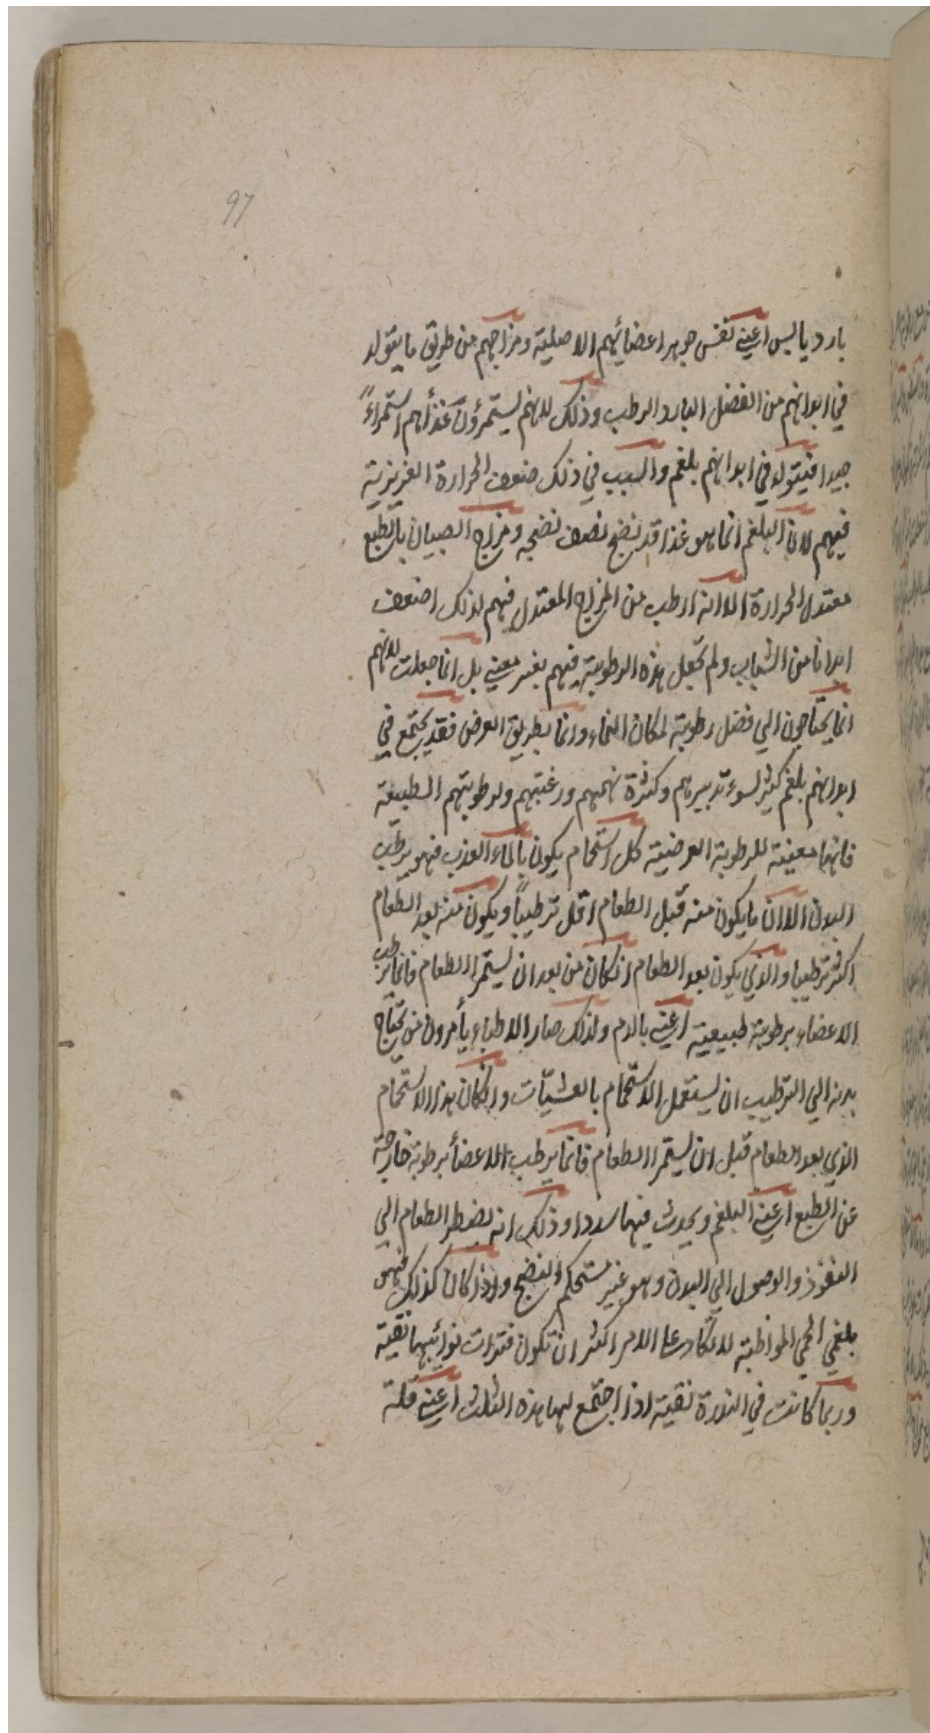 97
بارد يابس اعني نفس جوهر اعضائهم الاصلية ومزاجهم من طريق ما يتولد
في ابدانهم من الفضل البارد الرطب وذلك لانهم يستمرؤن غذأهم استمراءً
جيدا فيتولد في ابدانهم بلغم والسبب في ذلك ضعف الحرارة الغريزية
فيهم لان البلغم انما هو غذا قد نضج نصف نضجه ومزاج الصبيان بالطبع
معتدل الحرارة الا انه ارطب من المزاج المعتدل فهم لذلك اضعف
ابدانا من الشباب ولم تجعل هذه الرطوبة فيهم بغير معني بل انما جعلت لانهم
انما يحتاجون الي فضل رطوبة لمكان النماء وانما بطريق العرض فقد يجتمع في
ابدانهم بلغم كثير لسوء تدبيرهم وكثرة نهمهم ورغبتهم ولرطوبتهم الطبيعية
فانها معينة للرطوبة العرضية كل استحمام يكون بالماء العذب فهو يرطب
البدن الا ان ما يكون منه قبل الطعام اقل ترطيباً ويكون منه بعد الطعام
اكثر ترطيبا والذي يكون بعد الطعام انكان من بعد ان يستمرا الطعام فانما يرطب
الاعضاء برطوبة طبيعية اعني بالدم ولذلك صار الاطباء يأمرون من يحتاج
بدنه الي الترطيب ان يستعمل الاستحمام بالعشيّات وانكان هذا الاستحمام
الذي بعد الطعام قبل ان يستمرا الطعام فانما يرطب الاعضأ برطوبة خارجة
عن الطبع اعني البلغم ويحدث فيها سددا وذلك انه يضطر الطعام الي
النفوذ والوصول الي البدن وهو غير مستحكم النضج واذا كان كذلك فهو
بلغمي الحمي المواظبة لا تكاد علي الامر اكثر ان تكون فترات نوائبها نقية
وربما كانت في الندرة نقية اذا اجتمع لها هذه الثلث اعني قلة